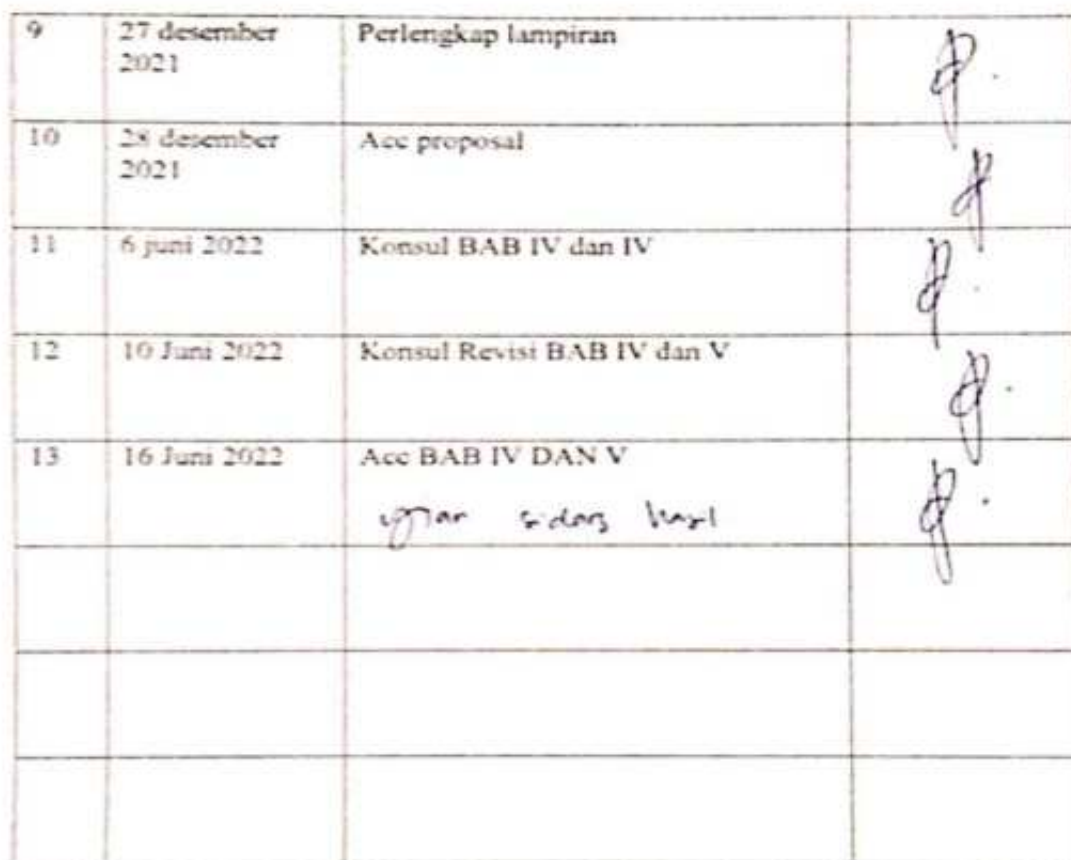 9 27 desember Perlengkap lampiran
2021
10 28 desember Acc proposal
2021
11 6 juni 2022 Konsul BAB IV dan IV
12 10 Juni 2022 Konsul Revisi BAB IV dan V
13 16 Juni 2022 Acc BAB IV DAN V
ujian sidang hasil